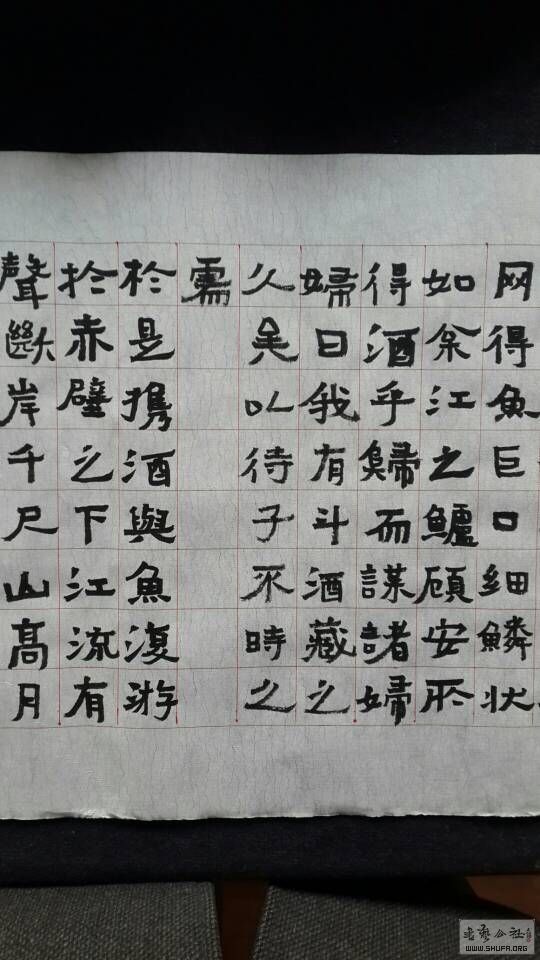 网得魚巨口細鱗状
如余江之鱸顧安所
得酒乎歸而謀諸婦
婦曰我有斗酒藏之
久矣以待子不時之
需
於是携酒與魚復游
於赤壁之下江流有
聲斷岸千尺山髙月
书艺公社
WWW.SHUFA.ORG